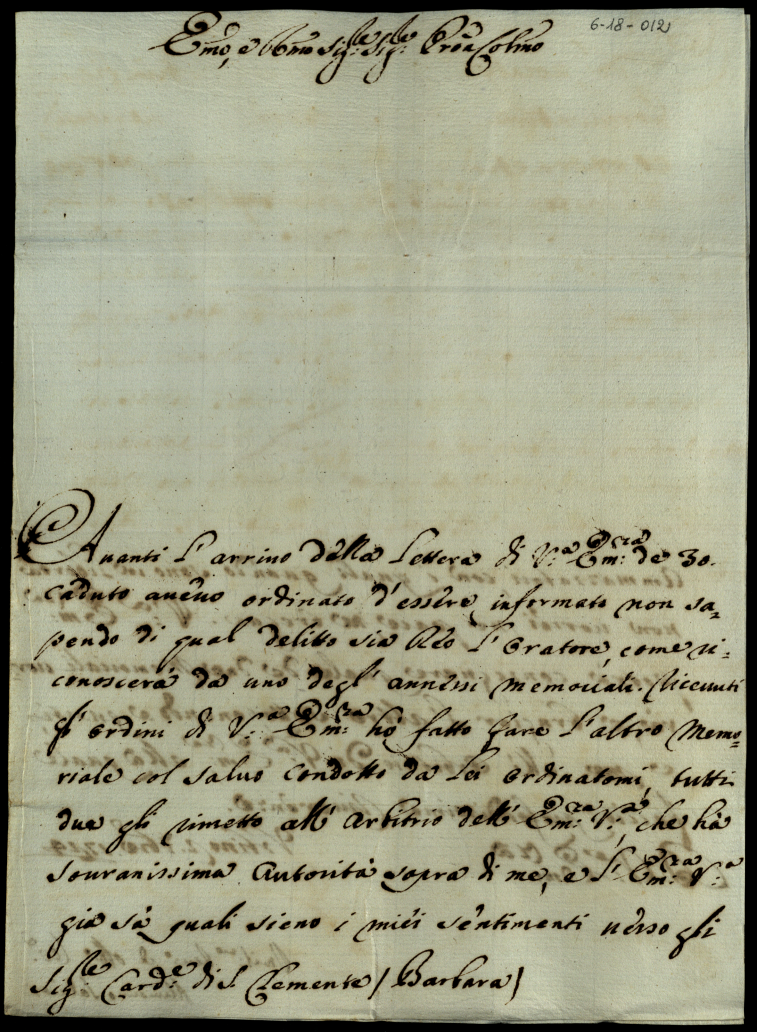 6-18-012
Emo, e Rmo Sig:re Sig:re Prõn Colmo
Avanti l'arrivo della Lettera di V:a Em:za de 30.
caduto avevo ordinato d'essere informato non sa-
pendo di qual delitto sia Reo l'Oratore, come ri-
conoscerà da uno degl' annessi memoriali. Ricevuti
gl' ordini di V:a Em:za hò fatto fare l'altro Memo-
riale col salvo condotto da Lei ordinatomi, tutti
due gli rimetto all' Arbitrio dell' Em:za V:a, che hà
souranissima Autorità sopra di me, e l' Em:za V:a
già sà quali sieno i miei sentimenti verso gli
Sig:re Card:e di S. Clemente / Barbara /